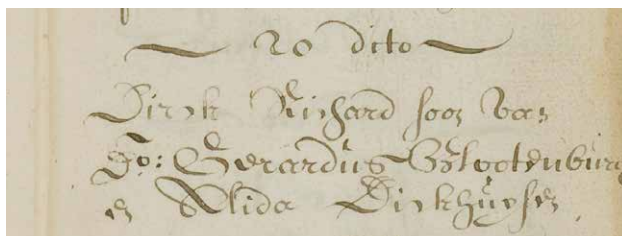 20 dito
Dirck Richard soon van
Do: Gerardus Slootenburg
en Alida Dickhuysen